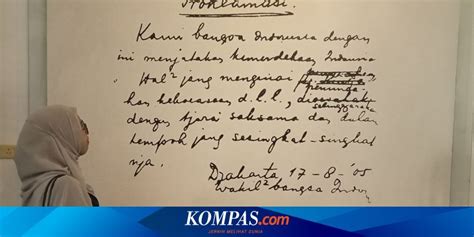 Proklamasi.
Kami bangsa Indonesia dengan
ini menjatakan kemerdekaan Indones
Hal² jang mengenai
kan kekoeasaan d.l.l.,
dengan tjara saksama dan dalam
tempoh jang sesingkat-singkat
nja.
Djakarta 17-8-'05
Wakil² bangsa Indon
KOMPAS.com
JERNIH MELIHAT DUNIA